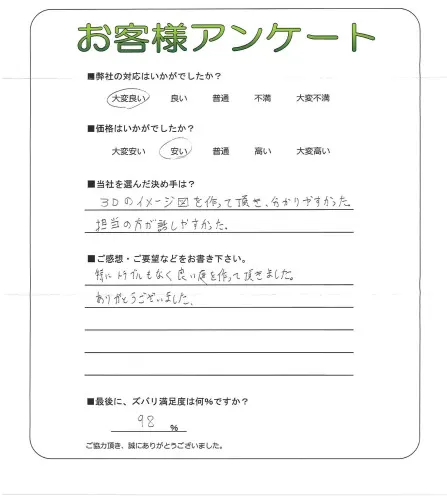 お客様アンケート
■弊社の対応はいかがでしたか？
大変良い 良い 普通 不満 大変不満
■価格はいかがでしたか？
大変安い 安い 普通 高い 大変高い
■当社を選んだ決め手は？
3Dのイメージ図を作って頂き、分かりやすかった。
担当の方が話しやすかった。
■ご感想・ご要望などをお書き下さい。
特にトラブルもなく良い庭を作って頂きました。
ありがとうございました。
■最後に、ズバリ満足度は何%ですか？
98 %
ご協力頂き、誠にありがとうございました。